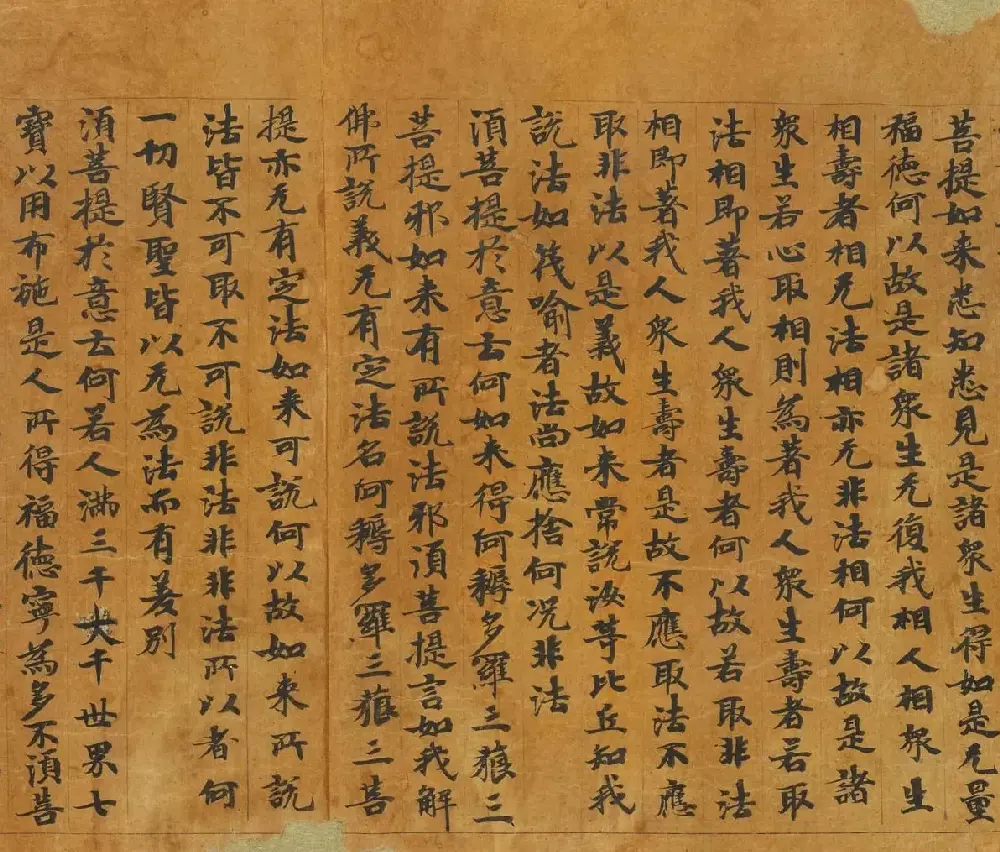 菩提如来悉知悉見是諸衆生得如是无量
福德何以故是諸衆生无復我相人相衆生
相壽者相无法相亦无非法相何以故是諸
衆生若心取相則為著我人衆生壽者若取
法相即著我人衆生壽者何以故若取非法
相即著我人衆生壽者是故不應取法不應
取非法以是義故如来常說汝等比丘知我
說法如筏喻者法尚應捨何況非法
須菩提於意云何如来得阿耨多羅三藐三
菩提邪如来有所說法邪須菩提言如我解
佛所說義无有定法名阿耨多羅三藐三菩
提亦无有定法如来可說何以故如来所說
法皆不可取不可說非法非非法所以者何
一切賢聖皆以无為法而有差別
須菩提於意云何若人滿三千大千世界七
寶以用布施是人所得福德寧為多不須菩